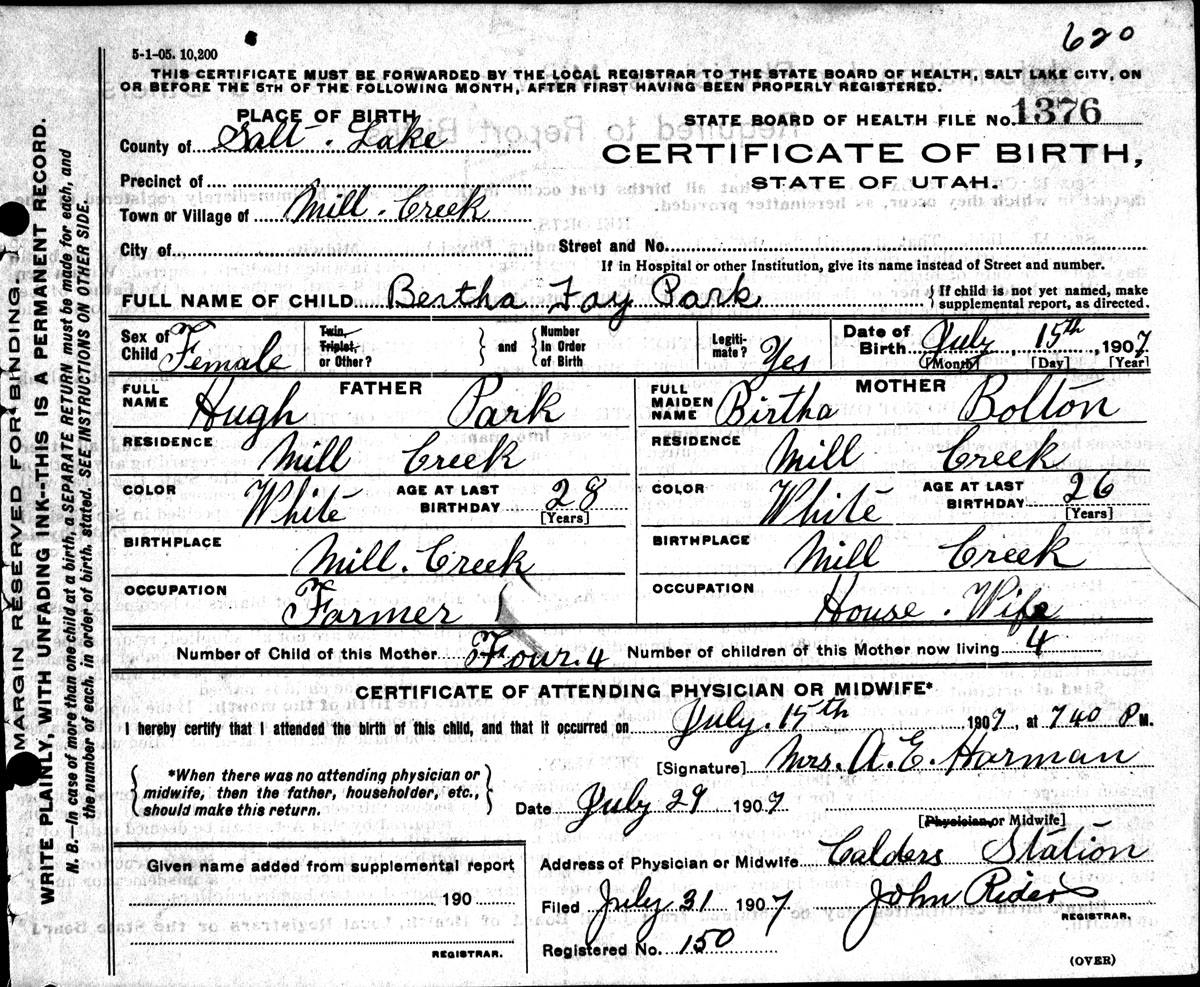 620
5-1-05. 10,200
THIS CERTIFICATE MUST BE FORWARDED BY THE LOCAL REGISTRAR TO THE STATE BOARD OF HEALTH, SALT LAKE CITY, ON
OR BEFORE THE 5TH OF THE FOLLOWING MONTH, AFTER FIRST HAVING BEEN PROPERLY REGISTERED.
PLACE OF BIRTH
STATE BOARD OF HEALTH FILE No. 1376
County of Salt. Lake
CERTIFICATE OF BIRTH,
STATE OF UTAH.
Precinct of
Town or Village of Mill. Creek
City of Street and No.
If in Hospital or other Institution, give its name instead of Street and number.
FULL NAME OF CHILD Bertha Fay Park { If child is not yet named, make supplemental report, as directed.
Sex of Child Female Twin, Triplet, or Other? } and { Number In Order of Birth Legitimate? Yes Date of Birth July, 15th, 1907
[Month] [Day] [Year]
FATHER MOTHER
FULL NAME Hugh Park FULL MAIDEN NAME Birtha Bolton
RESIDENCE Mill Creek RESIDENCE Mill Creek
COLOR White AGE AT LAST BIRTHDAY 28 [Years] COLOR White AGE AT LAST BIRTHDAY 26 [Years]
BIRTHPLACE Mill. Creek BIRTHPLACE Mill Creek
OCCUPATION Farmer OCCUPATION House. Wife
Number of Child of this Mother Four. 4 Number of children of this Mother now living 4
CERTIFICATE OF ATTENDING PHYSICIAN OR MIDWIFE*
I hereby certify that I attended the birth of this child, and that it occurred on July. 15th 1907, at 740 P M.
{ *When there was no attending physician or midwife, then the father, householder, etc., should make this return. }
[Signature] Mrs. A. E. Harman
Date July 29 1907
[Physician, or Midwife]
Given name added from supplemental report
190
REGISTRAR.
Address of Physician or Midwife Calders Station
Filed July 31 1907 John Rider
REGISTRAR.
Registered No. 150
(OVER)
MARGIN RESERVED FOR BINDING.
WRITE PLAINLY, WITH UNFADING INK--THIS IS A PERMANENT RECORD.
N. B.—In case of more than one child at a birth, a SEPARATE RETURN must be made for each, and
the number of each, in order of birth, stated. SEE INSTRUCTIONS ON OTHER SIDE.